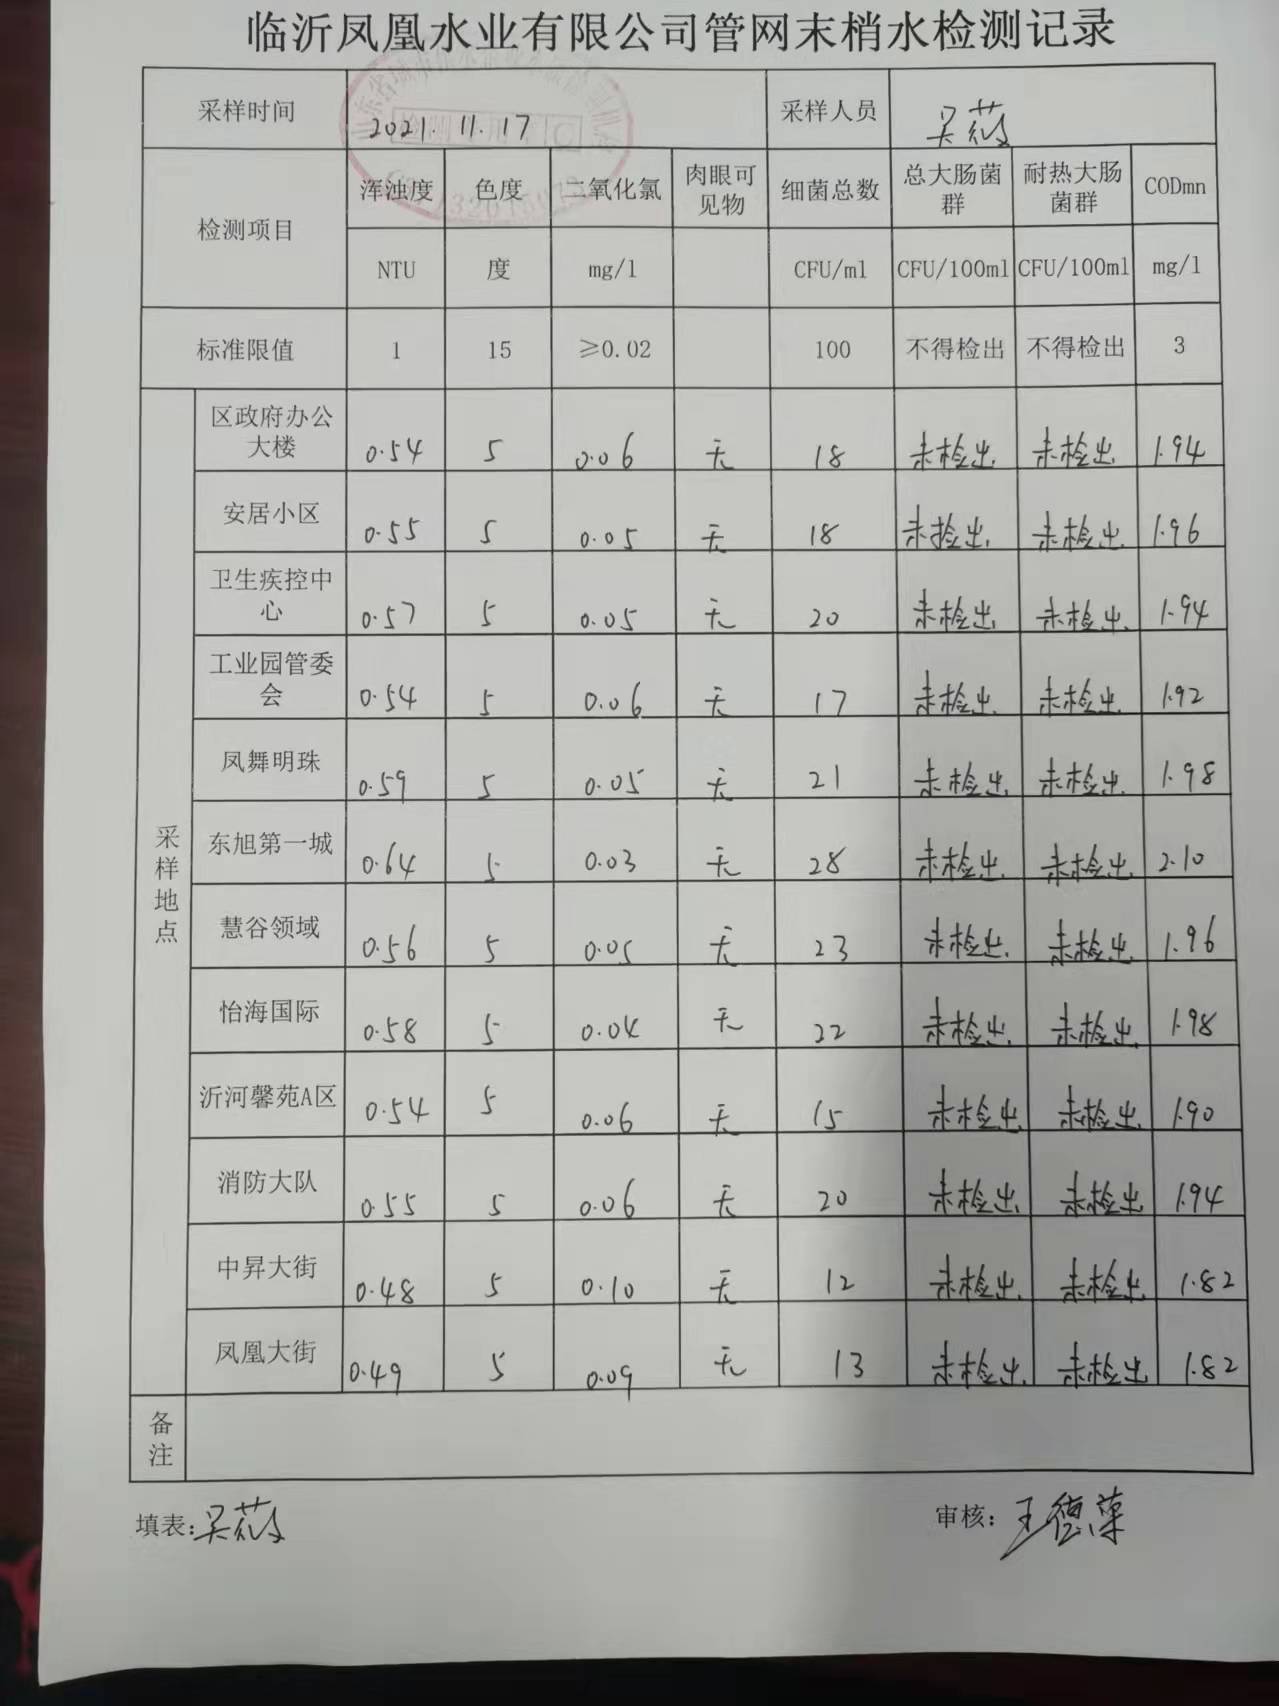 临沂凤凰水业有限公司管网末梢水检测记录
采样时间 2021.11.17 采样人员
检测项目 浑浊度 色度 二氧化氯 肉眼可见物 细菌总数 总大肠菌群 耐热大肠菌群 CODmn
NTU 度 mg/l CFU/ml CFU/100ml CFU/100ml mg/l
标准限值 1 15 ≥0.02 100 不得检出 不得检出 3
采样地点
区政府办公大楼 0.54 5 0.06 无 18 未检出 未检出 1.94
安居小区 0.55 5 0.05 无 18 未检出 未检出 1.96
卫生疾控中心 0.57 5 0.05 无 20 未检出 未检出 1.94
工业园管委会 0.54 5 0.06 无 17 未检出 未检出 1.92
凤舞明珠 0.59 5 0.05 无 21 未检出 未检出 1.98
东旭第一城 0.64 5 0.03 无 28 未检出 未检出 2.10
慧谷领域 0.56 5 0.05 无 23 未检出 未检出 1.96
怡海国际 0.58 5 0.04 无 22 未检出 未检出 1.98
沂河馨苑A区 0.54 5 0.06 无 15 未检出 未检出 1.90
消防大队 0.55 5 0.06 无 20 未检出 未检出 1.94
中昇大街 0.48 5 0.10 无 12 未检出 未检出 1.82
凤凰大街 0.49 5 0.09 无 13 未检出 未检出 1.82
备注
填表: 审核: